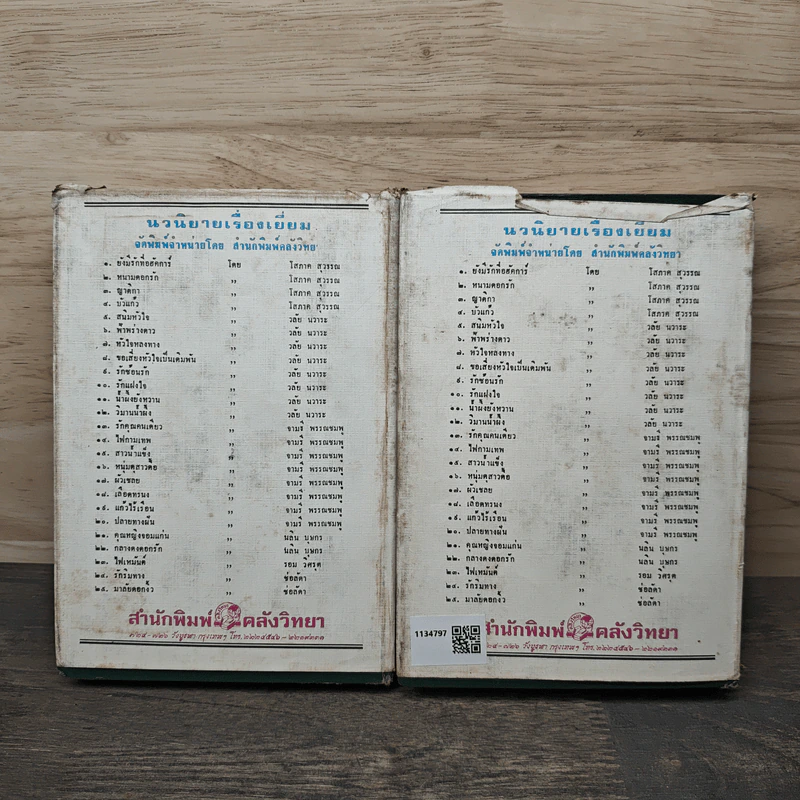 นวนิยายเรื่องเยี่ยม
จัดพิมพ์จำหน่ายโดย สำนักพิมพ์คลังวิทย
๑. ยังมีรักที่อัสดัสการ์ โดย โสภาค สุวรรณ
๒. หนามดอกรัก ,, โสภาค สุวรรณ
๓. ญาติกา ,, โสภาค สุวรรณ
๔. บัวแก้ว ,, โสภาค สุวรรณ
๕. สนิมหัวใจ ,, วลัย นวาระ
๖. ฟ้าพร่างดาว ,, วลัย นวาระ
๗. หัวใจหลงทาง ,, วลัย นวาระ
๘. ขอเสี่ยงหัวใจเป็นเดิมพัน ,, วลัย นวาระ
๙. รักซ้อนรัก ,, วลัย นวาระ
๑๐. รักแฝงใจ ,, วลัย นวาระ
๑๑. น้ำผึ้งยังหวาน ,, วลัย นวาระ
๑๒. วิมานน้ำผึ้ง ,, วลัย นวาระ
๑๓. รักคุณคนเดียว ,, จามรี พรรณชมพู
๑๔. ไฟกามเทพ ,, จามรี พรรณชมพู
๑๕. สาวน้ำแข็ง ,, จามรี พรรณชมพู
๑๖. หนุ่มดุสาวดื้อ ,, จามรี พรรณชมพู
๑๗. ผัวเชลย ,, จามรี พรรณชมพู
๑๘. เลือดทรนง ,, จามรี พรรณชมพู
๑๙. แก้วไร้เรือน ,, จามรี พรรณชมพู
๒๐. ปลายทางฝัน ,, จามรี พรรณชมพู
๒๑. คุณหญิงจอมแก่น ,, นลิน บุษกร
๒๒. กลางดงดอกรัก ,, นลิน บุษกร
๒๓. ไฟเหมันต์ ,, รอม วิศรุต
๒๔. รักริมทาง ,, ช่อลัดา
๒๕. มาลัยดอกงิ้ว ,, ช่อลัดา
สำนักพิมพ์ คลังวิทยา
๗๒๔-๗๒๖ วังบูรพา กรุงเทพฯ โทร.
นวนิยายเรื่องเยี่ยม
จัดพิมพ์จำหน่ายโดย สำนักพิมพ์คลังวิทยา
๑. โดย โสภาค สุวรรณ
๒. หนามดอกรัก ,, โสภาค สุวรรณ
๓. ญาติกา ,, โสภาค สุวรรณ
๔. บัวแก้ว ,, โสภาค สุวรรณ
๕. สนิมหัวใจ ,, วลัย นวาระ
๖. ฟ้าพร่างดาว ,, วลัย นวาระ
๗. หัวใจหลงทาง ,, วลัย นวาระ
๘. ขอเสี่ยงหัวใจเป็นเดิมพัน ,, วลัย นวาระ
๙. รักซ้อนรัก ,, วลัย นวาระ
๑๐. รักแฝงใจ ,, วลัย นวาระ
๑๑. น้ำผึ้งยังหวาน ,, วลัย นวาระ
๑๒. วิมานน้ำผึ้ง ,, วลัย นวาระ
๑๓. รักคุณคนเดียว ,, จามรี พรรณชมพู
๑๔. ไฟกามเทพ ,, จามรี พรรณชมพู
๑๕. สาวน้ำแข็ง ,, จามรี พรรณชมพู
๑๖. หนุ่มดุสาวดื้อ ,, จามรี พรรณชมพู
๑๗. ผัวเชลย ,, จามรี พรรณชมพู
๑๘. เลือดทรนง ,, จามรี พรรณชมพู
๑๙. แก้วไร้เรือน ,, จามรี พรรณชมพู
๒๐. ปลายทางฝัน ,, จามรี พรรณชมพู
๒๑. คุณหญิงจอมแก่น ,, นลิน บุษกร
๒๒. กลางดงดอกรัก ,, นลิน บุษกร
๒๓. ไฟเหมันต์ ,, รอม วิศรุต
๒๔. รักริมทาง ,, ช่อลัดา
๒๕. มาลัยดอกงิ้ว ,, ช่อลัดา
สำนักพิมพ์ คลังวิทยา
วังบูรพา กรุงเทพฯ โทร.
1134797